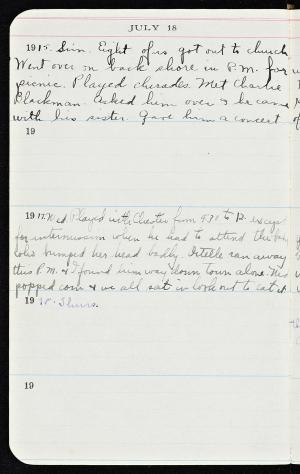 JULY 18
1915. Sun. Eight of us got out to church
Went over on back shore in P.M. for
picnic. Played charades. Met Charlie
Blackman. Asked him over & he came
with his sister. Gave him a concert
19
1917. Wed. Played with Chester from 9.30 to 12 except
for intermission when he had to attend the
bumped her head badly. Estelle ran away
this P.M. & I found him way down town alone.
popped corn & we all sat in look out to eat it
19 18. Thurs.
19